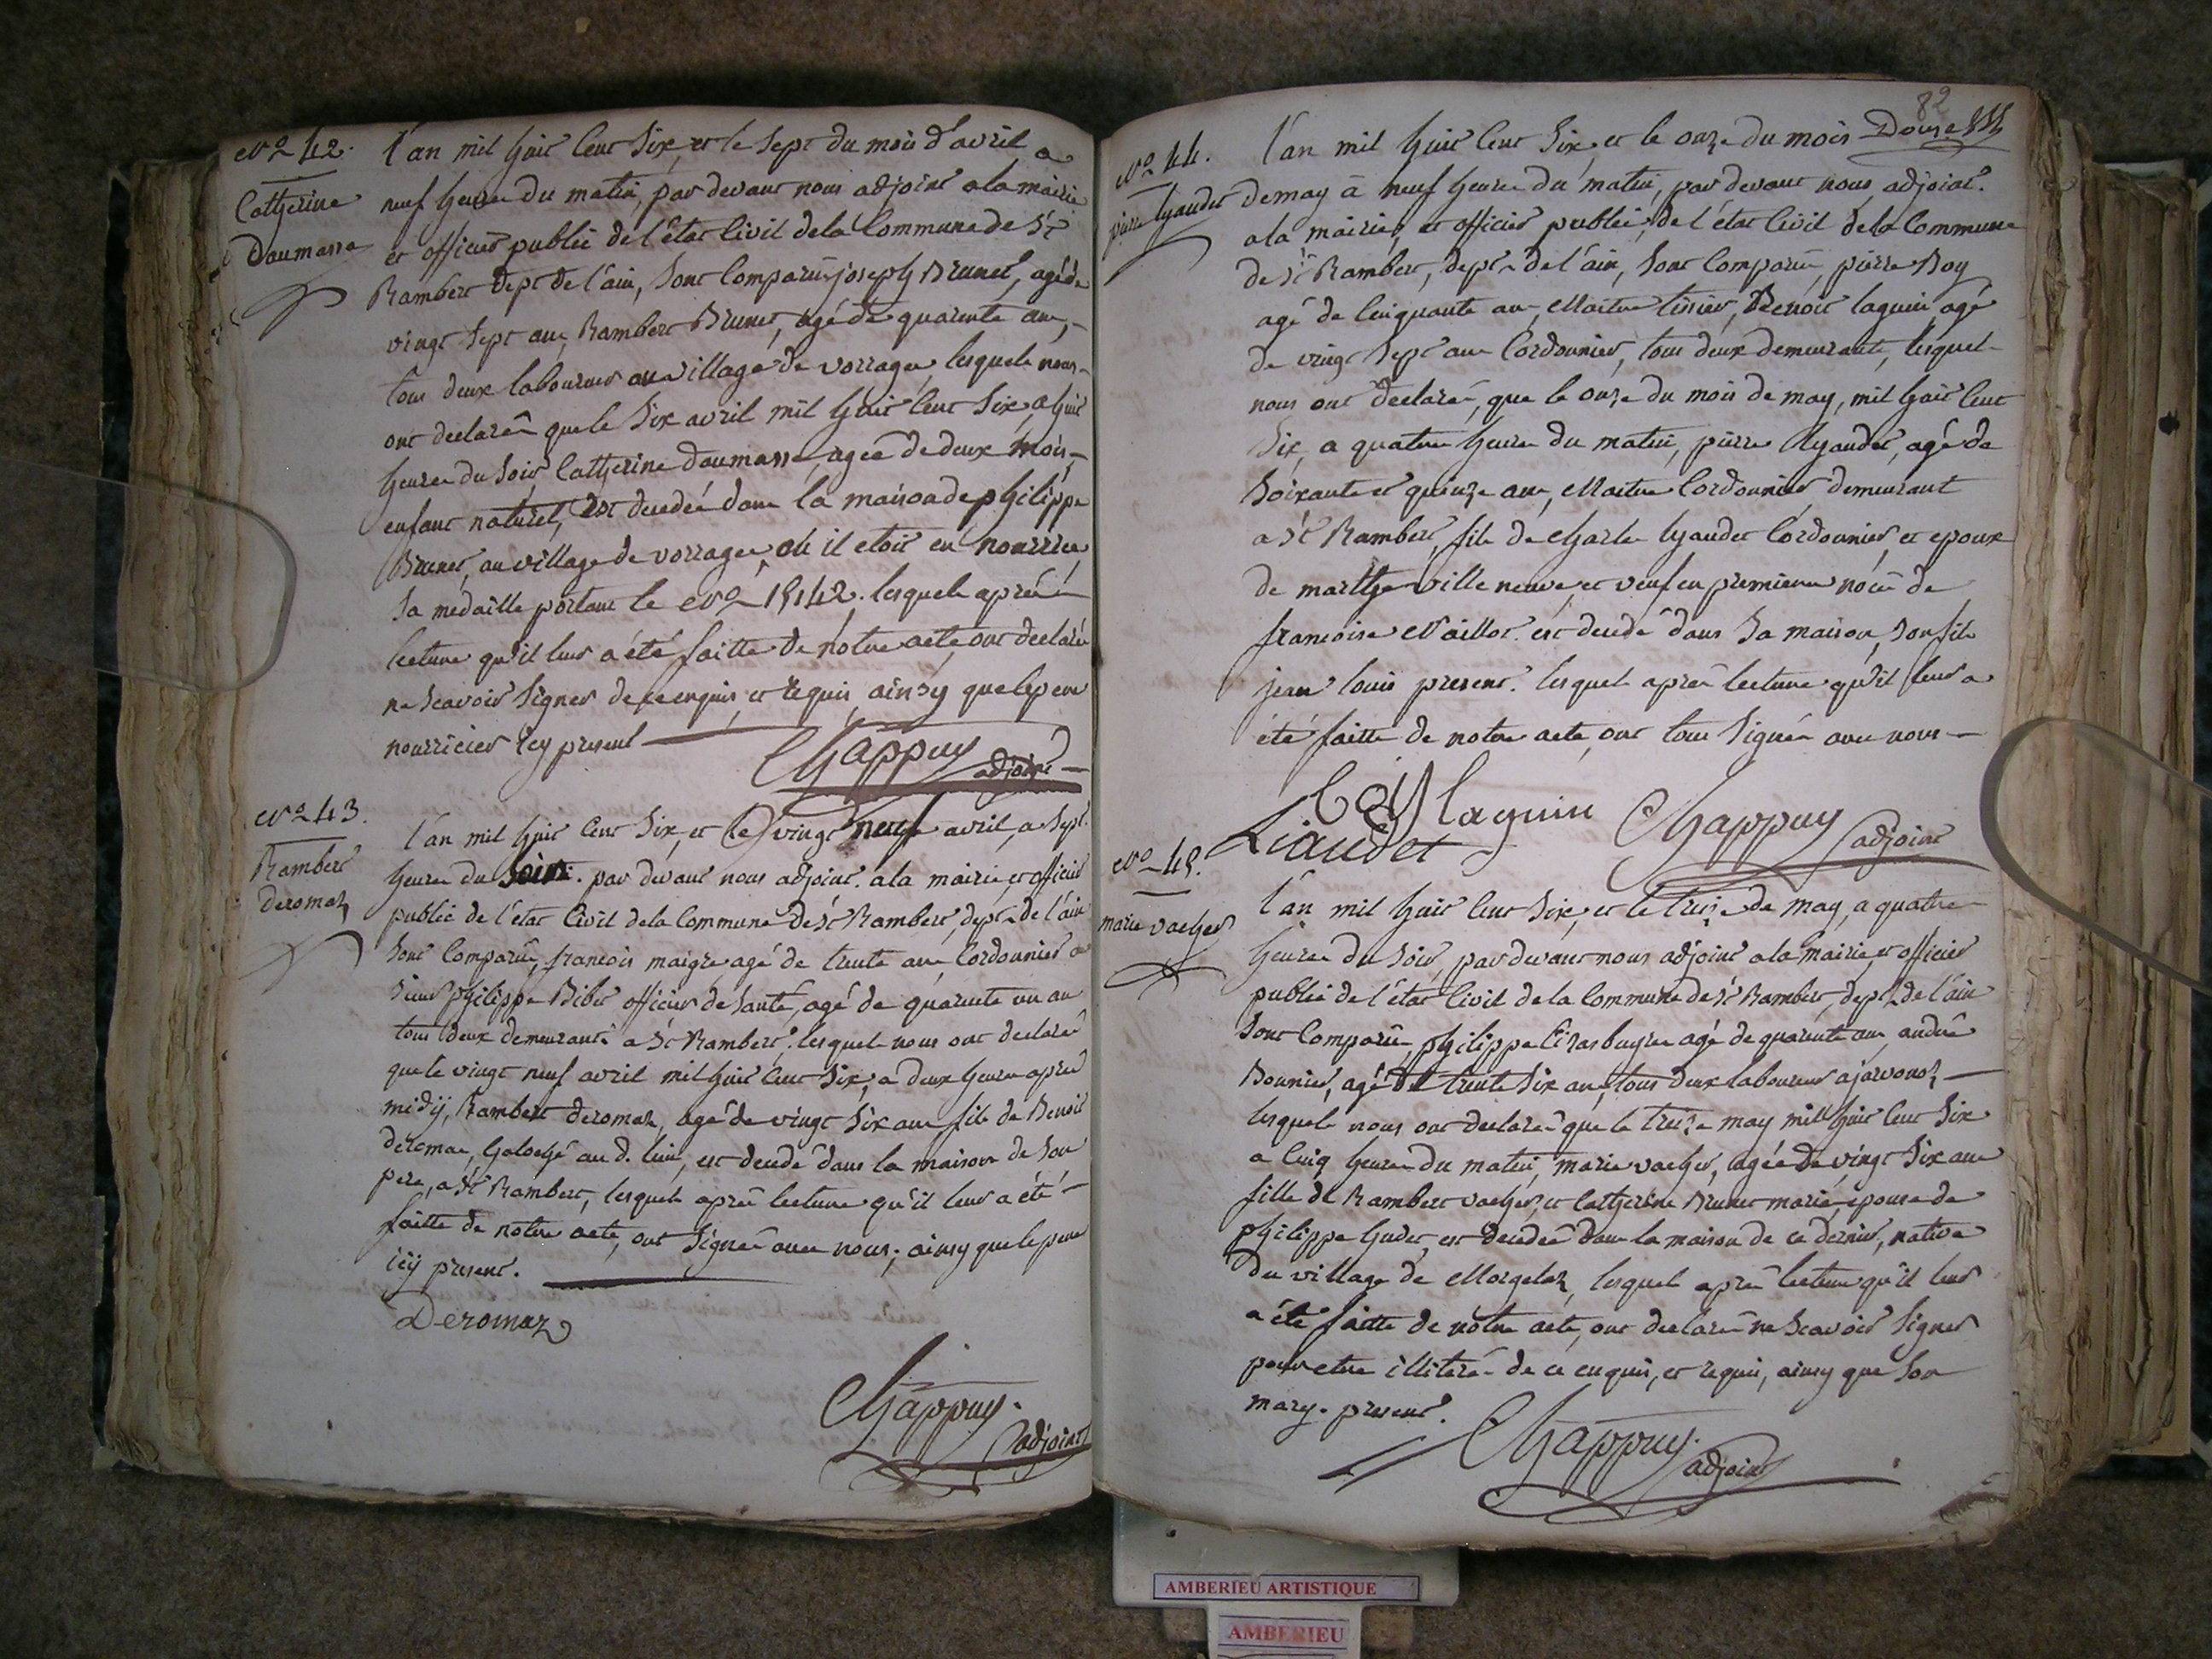 N.º 42.
Catherine
Daumasse
l'an mil huit cent six, et le sept du mois d'avril a
neuf heures du matin, par devant nous adjoint a la mairie
et officier public de l'état civil de la commune de St
Rambert dept de l'ain, sont comparus joseph Brunet, agé de
vingt sept ans, Rambert Brunet, agé de quarante ans,
tous deux laboureurs au village de vorrages, lesquels nous
ont declarés que le six avril mil huit cent six, a huit
heures du soir Catherine daumasse, agée de deux mois,
enfant naturel, est decedée dans la maison de philippe
Brunet, au village de vorrages, ou il etoit en nourrice,
sa medaille portant le N.º 15142. lesquels après
lecture qu'il leur a été faitte de notre acte, ont declarés
ne scavoir signer de ce enquis, et requis, ainsy que le pere
nourricier icy present
Chappuy
adjoint
N.º 43.
Rambert
deromaz
l'an mil huit cent six, et le vingt neuf avril, a sept
heures du soir. par devant nous adjoint a la mairie et officier
public de l'état civil de la commune de St Rambert, dept de l'ain
sont comparus, francois maigre agé de trente ans, cordonnier et
sieur philippe Bibet officier de santé, agé de quarante un an
tous deux demeurants a St Rambert, lesquels nous ont declarés
que le vingt neuf avril mil huit cent six, a deux heures après
midÿ, Rambert deromaz, agé de vingt six ans fils de Benoit
deromaz, galoché au d. lieu, est decedé dans la maison de son
pere, a St Rambert, lesquels après lecture qu'il leur a été
faitte de notre acte, ont signés avec nous, ainsy que le pere
icÿ present.
Deromaz
Chappuy.
adjoint
82
Douze
N.º 44.
pierre lyaudet
l'an mil huit cent six, et le onze du mois
de may à neuf heures du matin, par devant nous, adjoint
a la mairie, et officier public, de l'état civil de la commune
de St Rambert, dept de l'ain, sont comparus, pierre Boy
agé de cinquante ans, Maitre tissier, Benoit laguin, agé
de vingt sept ans cordonnier, tous deux demeurants, lesquels
nous ont declarés, que le onze du mois de may, mil huit cent
six, a quatre heures du matin, pierre lyaudet, agé de
soixante et quinze ans, Maitre cordonnier demeurant
a St Rambert, fils de charle lyaudet cordonnier, et epoux
de marthe ville neuve, et veuf en premieres noces de
francoise Vaillot. est decedé dans sa maison, son fils
jean louis present. lesquels après lecture qu'il leur a
été faitte de notre acte ont tous signés avec nous
boy laguin Chappuy
Liaudet adjoint
N.º 45.
marie vacher
l'an mil huit cent six, et le treize de may, a quatre
heures du soir, par devant nous adjoint a la mairie, et officier
public de l'état civil de la commune de St Rambert, dept de l'ain
sont comparus, philippe agé de quarante ans, andré
Bounier, agé de trente six ans, tous deux laboureurs a javornoz
lesquels nous ont declarés que le treize may mil huit cent six
a cinq heures du matin, marie vacher, agée de vingt six ans
fille de Rambert vacher, et Catherine Brunet mariés, epouse de
philippe gudet, est decedée dans la maison de ce dernier, native
du village de Morgelaz, lesquels après lecture qu'il leur
a été faitte de notre acte, ont declarés ne scavoir signer
pour etre illiterés de ce enquis, et requis, ainsy que son
mary. present.
Chappuy.
adjoint
AMBERIEU ARTISTIQUE
AMBERIEU